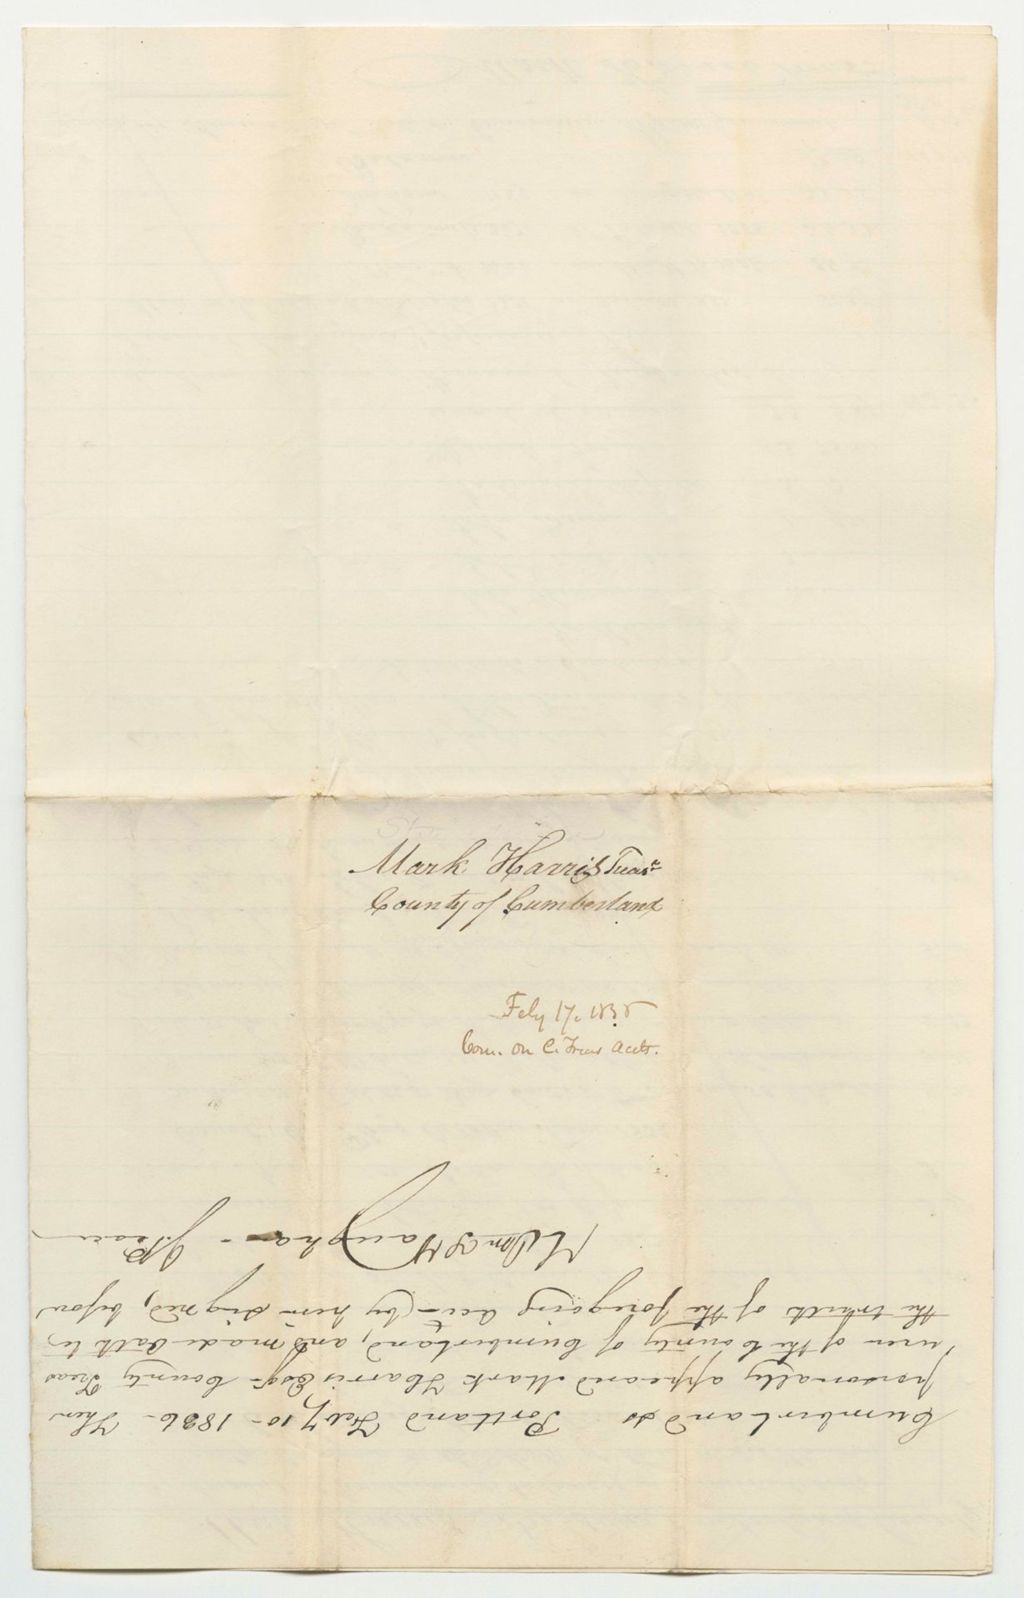 Mark Harris Treasr
County of Cumberland
Feby 17. 183
Com. on C. Treas Accts.
Cumberland ss Portland Feby 10 - 1836 - Then
personally appeard Mark Harris Esqr County Treas
urer of the County of Cumberland, and made Oath to
the truth of the foregoing acct (by him signed) before
J Peace